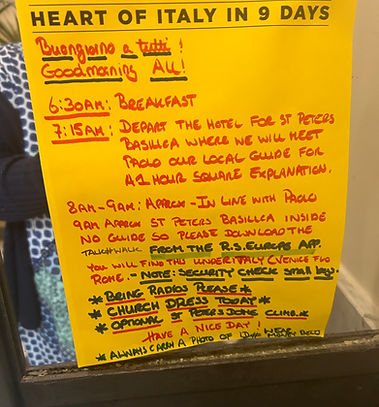 HEART OF ITALY IN 9 DAYS
Buongiorno a tutti!
Goodmorning ALL!
6:30AM: BREAKFAST
7:15AM: DEPART THE HOTEL FOR ST PETERS
BASILICA WHERE WE WILL MEET
PAOLO OUR LOCAL GUIDE FOR
A 1 HOUR SQUARE EXPLANATION.
8AM-9AM: APPROX - IN LINE WITH PAOLO
9AM APPROX ST PETERS BASILICA INSIDE
NO GUIDE SO PLEASE DOWNLOAD THE
TALK/WALK FROM THE R.S. EUROPE APP.
YOU WILL FIND THIS UNDER ITALY (VENICE FLO
ROME. - NOTE: SECURITY CHECK small bags.
* BRING RADIOS PLEASE *
* CHURCH DRESS TODAY *
* OPTIONAL ST PETERS DOME CLIMB. *
HAVE A NICE DAY!
* ALWAYS CARRY A PHOTO OF MONEY BELT